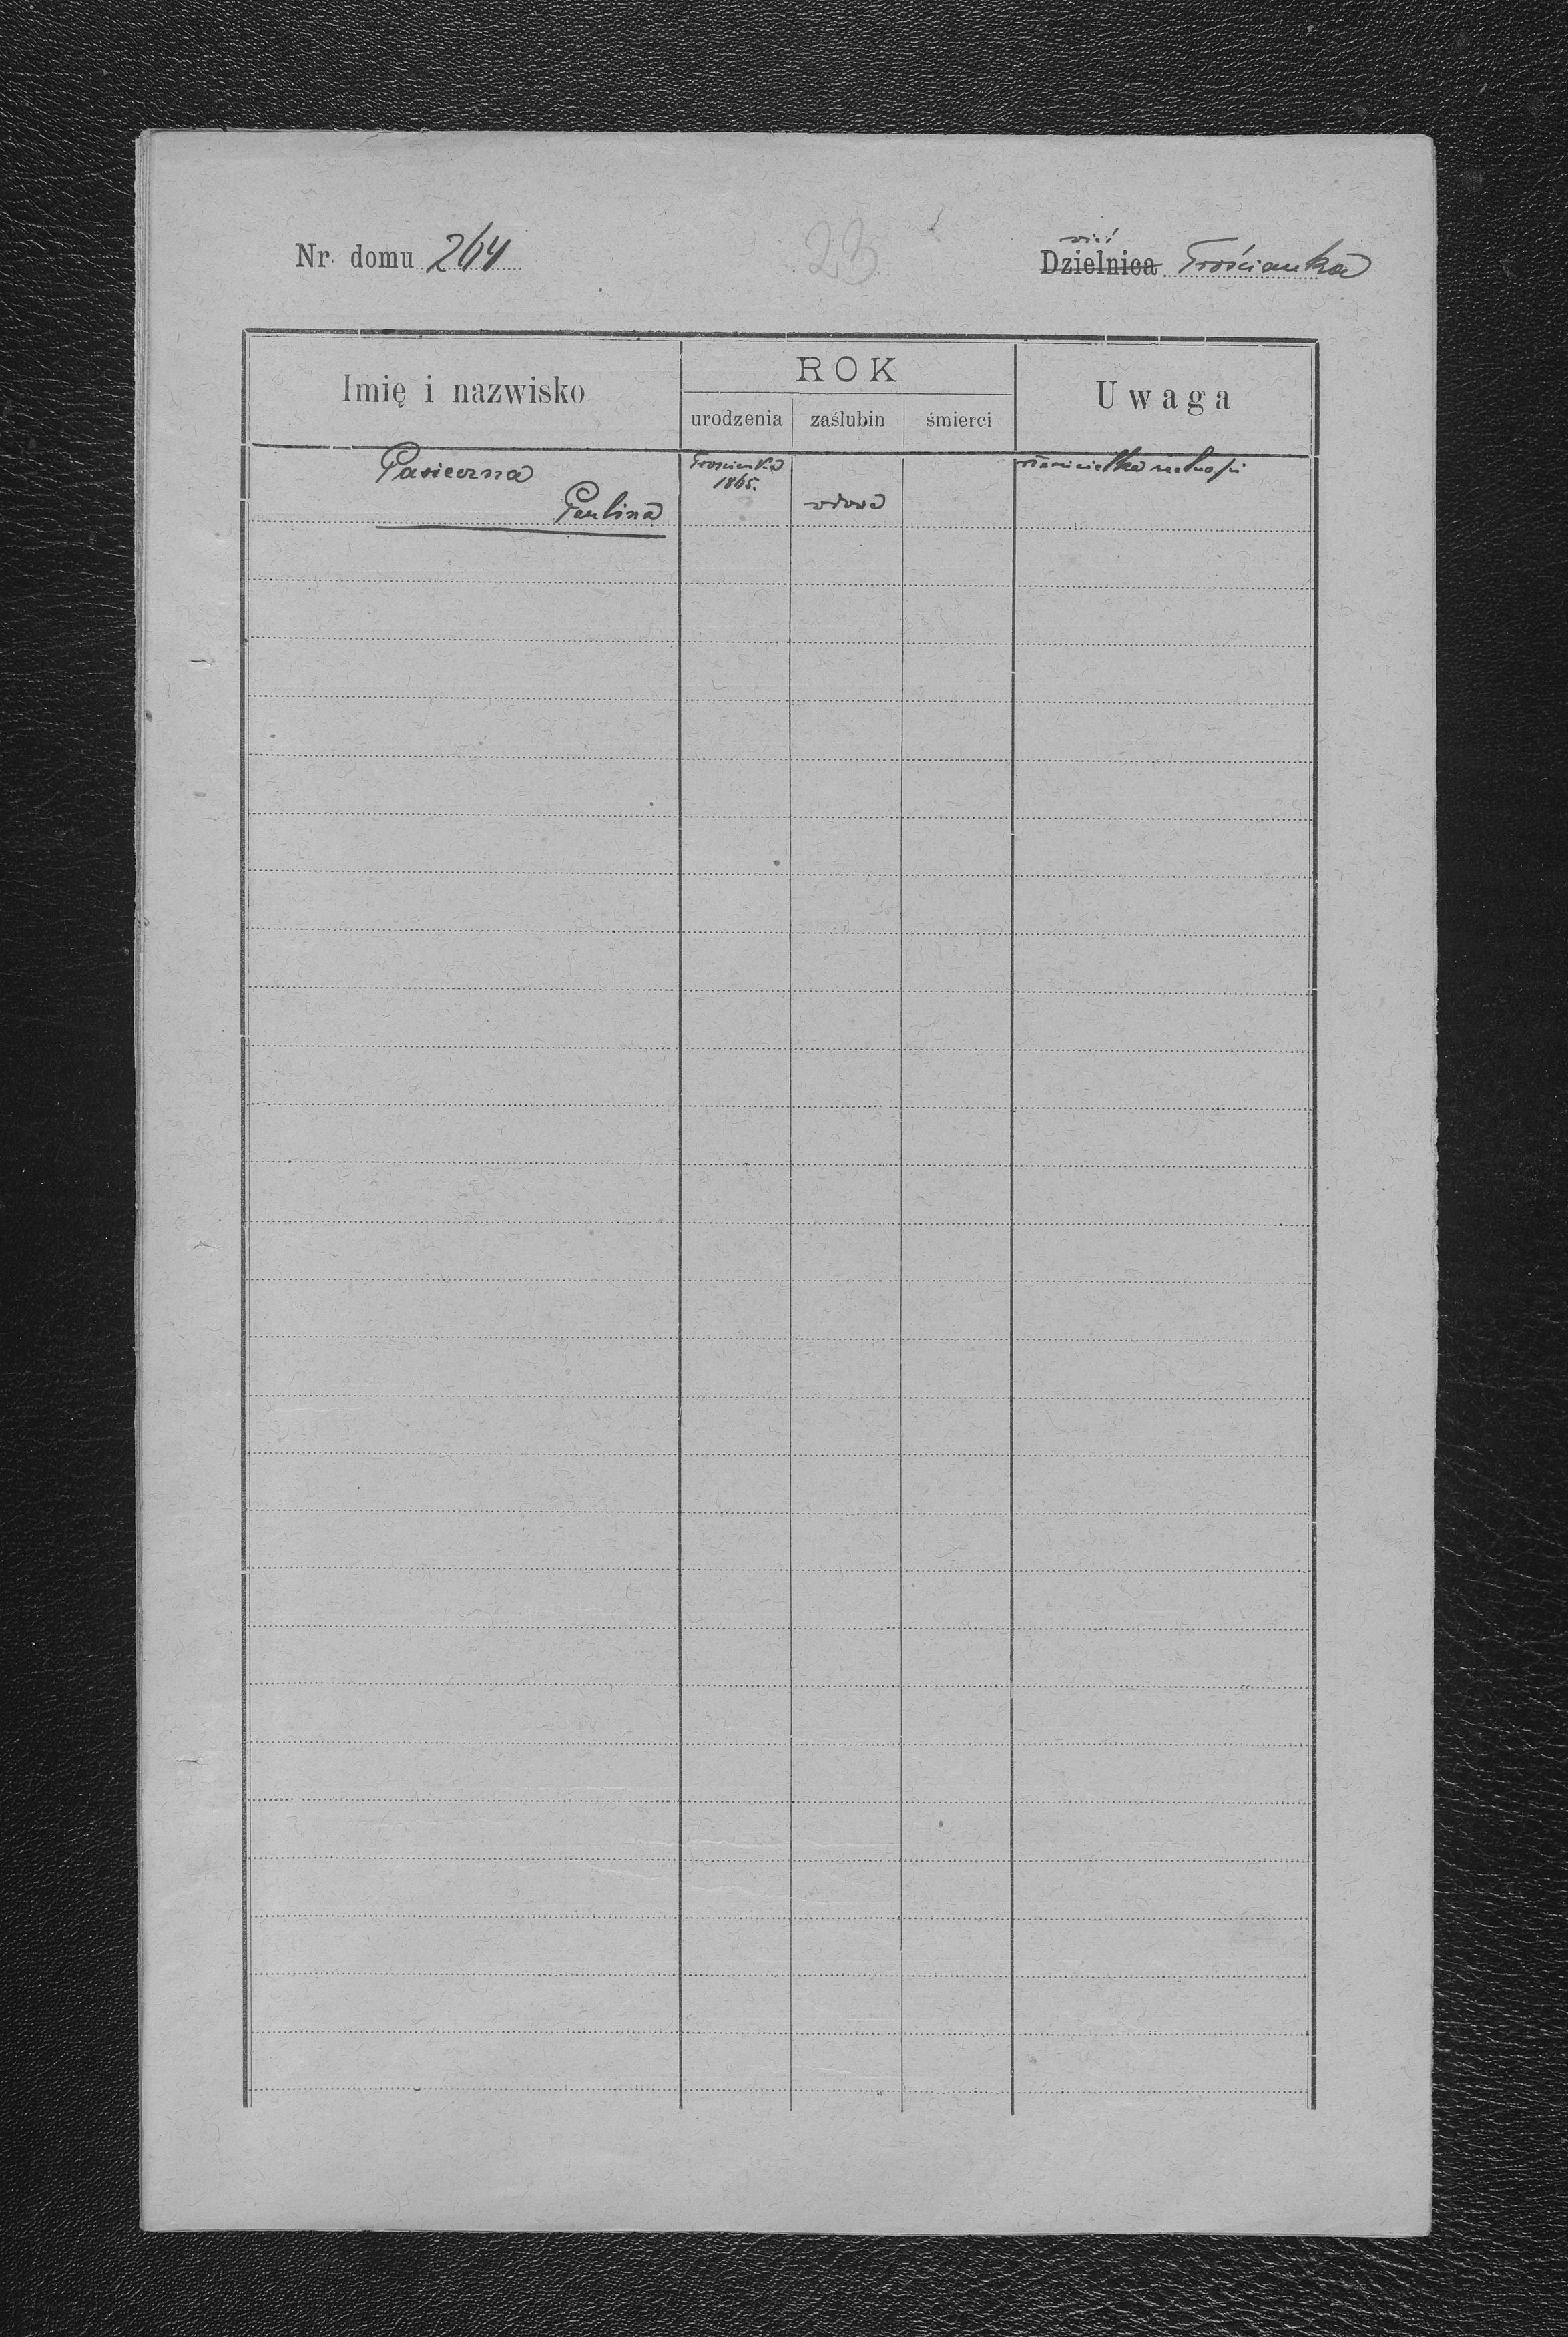 Nr. domu 264
23
wieś
Dzielnica Trościanka
Imię i nazwisko
ROK
urodzenia
zaślubin
śmierci
Uwaga
Pasieczna
Paulina
Trościanka
1865.
wdowa
właścicielka